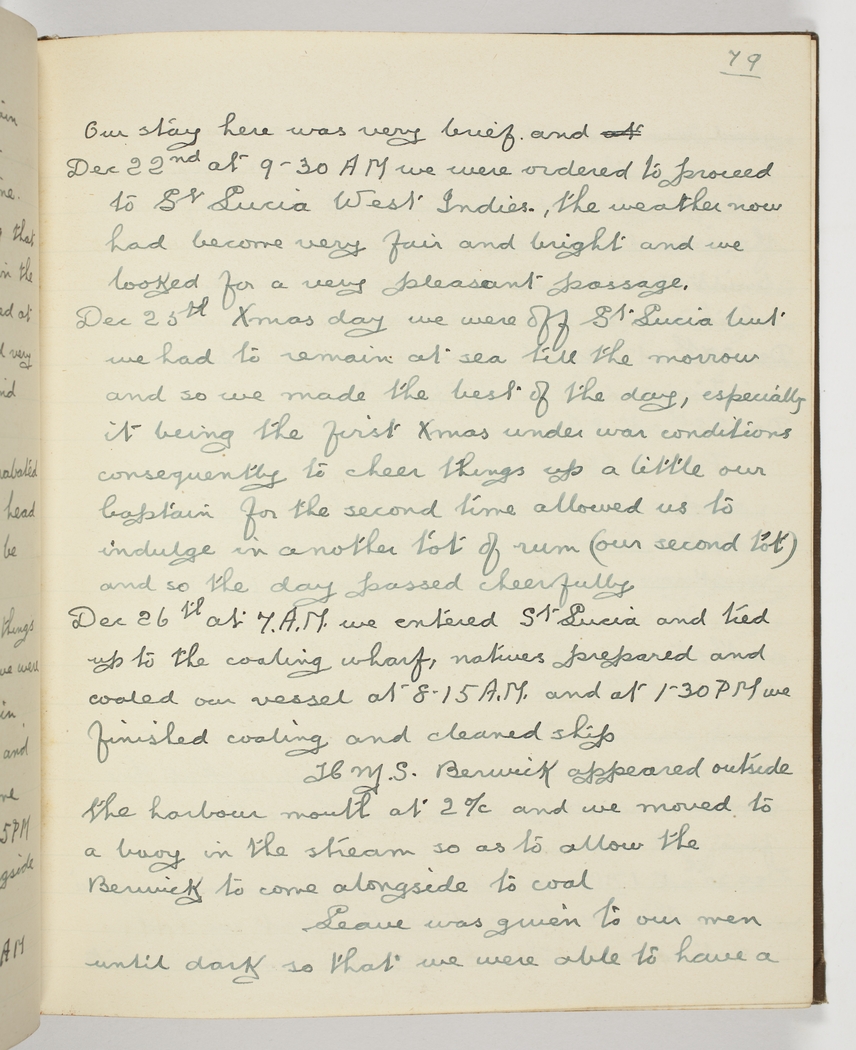 79
Our stay here was very brief. and at
Dec 22nd at 9-30 AM we were ordered to proceed
to St Lucia West Indies., the weather now
had become very fair and bright and we
looked for a very pleasant passage.
Dec 25th Xmas day we were off St Lucia but
we had to remain at sea till the morrow
and so we made the best of the day, especially
it being the first Xmas under war conditions
consequently to cheer things up a little our
Captain for the second time allowed us to
indulge in another tot of rum (our second tot)
and so the day passed cheerfully
Dec 26th at 7.A.M. we entered St Lucia and tied
up to the coaling wharf, natives prepared and
coaled our vessel at 8-15 A.M. and at 1-30 PM we
finished coaling and cleaned ship
H.M.S. Berwick appeared outside
the harbour mouth at 2 o/c and we moved to
a buoy in the stream so as to allow the
Berwick to come alongside to coal
Leave was given to our men
until dark so that we were able to have a
that
in the
ed at
very
head
be
things
we were
in.
and
5PM
gside
AM